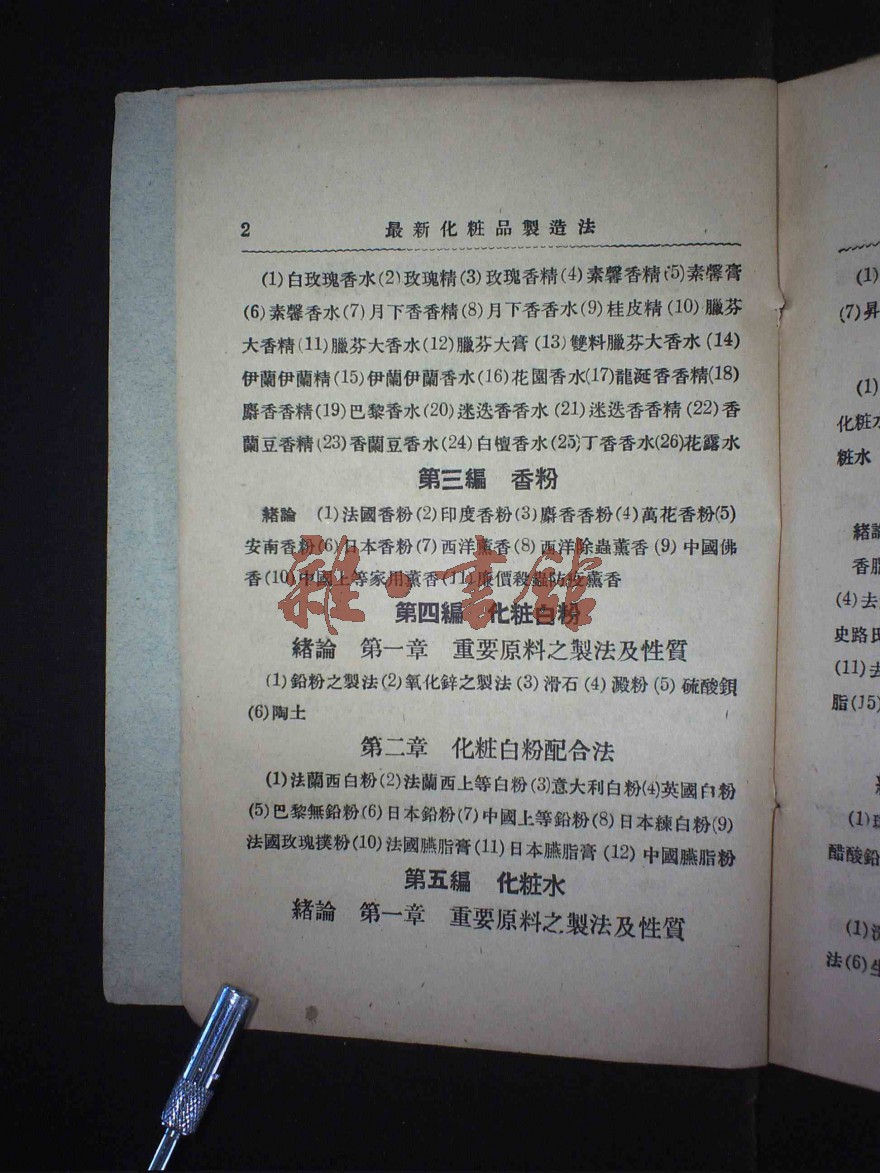 2 最新化粧品製造法
(1)白玫瑰香水(2)玫瑰精(3)玫瑰香精(4)素馨香精(5)素馨膏
(6)素馨香水(7)月下香香精(8)月下香香水(9)桂皮精(10)臘芬
大香精(11)臘芬大香水(12)臘芬大膏(13)雙料臘芬大香水(14)
伊蘭伊蘭精(15)伊蘭伊蘭香水(16)花園香水(17)龍涎香香精(18)
麝香香精(19)巴黎香水(20)迷迭香香水(21)迷迭香香精(22)香
蘭豆香精(23)香蘭豆香水(24)白檀香水(25)丁香香水(26)花露水
第三編 香粉
緒論 (1)法國香粉(2)印度香粉(3)麝香香粉(4)萬花香粉(5)
安南香粉(6)日本香粉(7)西洋薰香(8)西洋除蟲薰香(9)中國佛
香(10)中國上等家用薰香(11)廉價殺蟲防疫薰香
第四編 化粧白粉
緒論 第一章 重要原料之製法及性質
(1)鉛粉之製法(2)氧化鋅之製法(3)滑石(4)澱粉(5)硫酸鋇
(6)陶土
第二章 化粧白粉配合法
(1)法蘭西白粉(2)法蘭西上等白粉(3)意大利白粉(4)英國白粉
(5)巴黎無鉛粉(6)日本鉛粉(7)中國上等鉛粉(8)日本練白粉(9)
法國玫瑰撲粉(10)法國臙脂膏(11)日本臙脂膏(12)中國臙脂粉
第五編 化粧水
緒論 第一章 重要原料之製法及性質
雜·書館
(1)
(7)昇
(1)
化粧水
粧水
緒論
香脂
(4)去
史路氏
(11)去
脂(15)
(1)
醋酸鉛
(1)
法(6)生